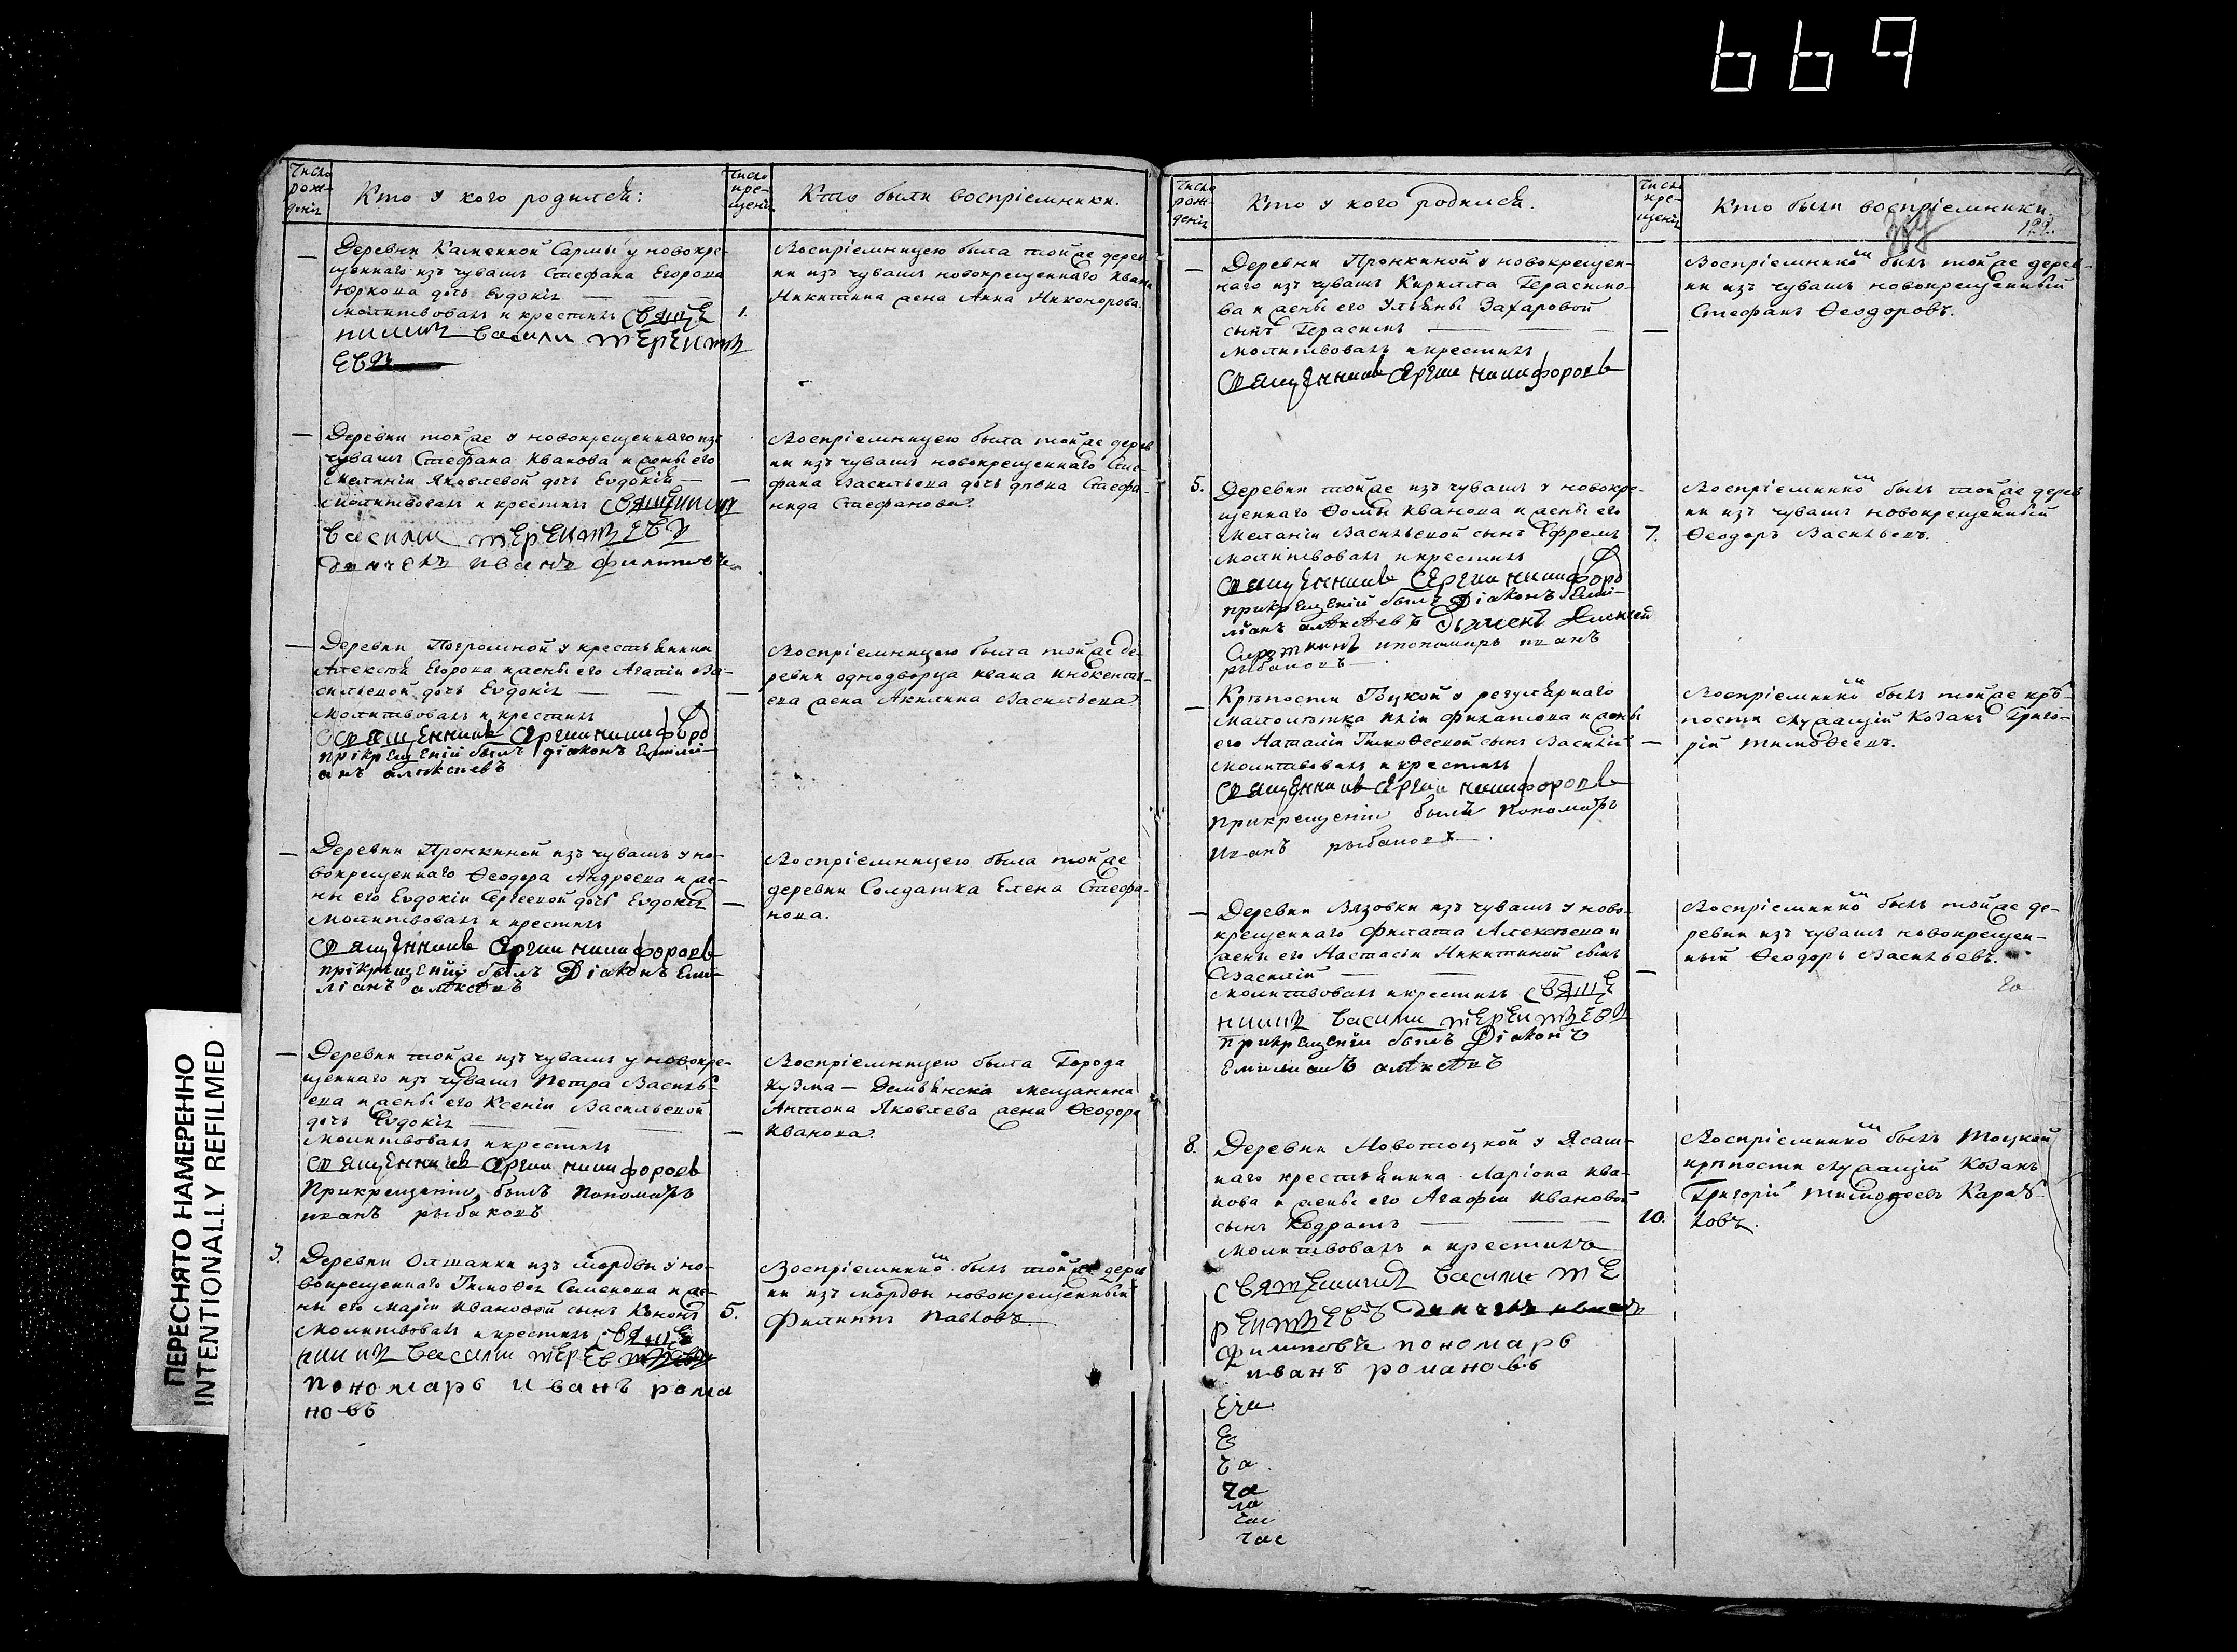 669
Число рож-дения
Кто у кого родился:
Число кре-щения
Кто были воспріемники.
Деревни Каменной Сармы у новокре-
щеннаго изъ чувашъ Стефана Егорова
дочь Евдокія
молитвовалъ и крестилъ Свяще
нникъ Василий Терентъ
евъ
1.
Воспріемницею была той же дерев
ни изъ чувашъ новокрещеннаго Ивана
Никитина жена Анна Никонорова.
Деревни той же у новокрещеннаго изъ
чувашъ Стефана Иванова и жены его
Меланіи Яковлевой дочь Евдокія
молитвовалъ и крестилъ Священникъ
Василий Терентъевъ
дьячекъ Иванъ Филиповъ
Воспріемницею была той же дерев
ни изъ чувашъ новокрещеннаго Сте-
фана Васильева дочь девка Стефа-
нида Стефанова.
Деревни Погромной у крестьянина
Алексѣя Егорова и жены его Агапіи Ва-
сильевой дочь Евдокія
молитвовалъ и крестилъ
Священникъ Сергий Никифоро
прікрещеній былъ діаконъ Емилі-
анъ алѣксѣевъ
Воспріемницею была той же де-
ревни однодворца Ивана Инокентіе-
ва жена Акилина Васильева.
Деревни Пронкиной изъ чувашъ у но-
вокрещеннаго Ѳеодора Андреева и же-
ны его Евдокіи Сергеевой дочь Евдокія
молитвовалъ и крестилъ
Священникъ Сергий Никифоровъ
прікрещеній былъ Діаконъ Еми-
ліанъ алѣксѣевъ
Воспріемницею была той же
деревни Солдатка Елена Стефа-
нова.
Деревни той же изъ чувашъ у новокре-
щеннаго изъ чувашъ Петра Василь-
ева и жены его Ксеніи Васильевой
дочь Евдокія
молитвовалъ и крестилъ
Священникъ Сергий Никифоровъ
Прикрещеніи былъ Пономарь
иванъ рыбаковъ
Воспріемницею была Города
Кузма-Демьянска мещанина
Антона Яковлева жена Ѳеодора
Иванова.
3.
Деревни Ольшанки изъ мордвы у но-
вокрещеннаго Тимоѳея Семенова и же-
ны его Маріи Ивановой сынъ Кононъ
молитвовалъ и крестилъ Свяще
нникъ Василий
пономарь иванъ рома
новъ
5.
Воспріемникомъ былъ той же дерев
ни изъ мордвы новокрещенный
Филиппъ Павловъ.
Число рож-денія
Кто у кого родился.
Число кре-щенія
Кто были воспріемники.
122.
Деревни Пронкиной у новокрещен-
наго изъ чувашъ Кирилла Герасимо-
ва и жены его Ульяны Захаровой
сынъ Герасимъ
молитвовалъ и крестилъ
Священникъ Сергий Никифоровъ
Воспріемникомъ былъ той же дерев-
ни изъ чувашъ новокрещенный
Стефанъ Ѳеодоровъ.
5.
Деревни той же изъ чувашъ у новокре-
щеннаго Ѳомы Иванова и жены его
Меланіи Васильевой сынъ Ефремъ
молитвовалъ и крестилъ
Священникъ Сергий Никифоро
прикрещеній былъ Діаконъ Еми-
ліанъ алѣксѣевъ дьячекъ Алексей
и пономарь иванъ
рыбаковъ
7.
Воспріемникомъ былъ той же дерев
ни изъ чувашъ новокрещенный
Ѳеодоръ Васильевъ.
Крѣпости Тоцкой у регулярнаго
его Наталіи Тимоѳеевой сынъ Василій
молитвовалъ и крестилъ
Священникъ Сергий Никифоровъ
Прикрещеніи былъ Пономарь
иванъ рыбаковъ
Воспріемникомъ былъ той же крѣ-
пости служащій Козакъ Григо-
рій Тимоѳеевъ.
Деревни Вязовки изъ чувашъ у ново-
крещеннаго Филата Алексѣева и
жены его Настасіи Никитиной сынъ
Василій
молитвовалъ и крестилъ Свяще
нникъ Василий Терентъевъ
Прикрещеніи былъ Діаконъ
Емилианъ алѣксѣевъ
Воспріемникомъ былъ той же де-
ревни изъ чувашъ новокрещен-
ный Ѳеодоръ Васильевъ.
8.
Деревни Новотоцкой у Ясаш-
наго крестьянина Ларіона Ива-
нова и жены его Агафіи Ивановой
сынъ Кодратъ
молитвовалъ и крестилъ
Священникъ Василие Те
рентъевъ дьячекъ иванъ
Филиповъ пономарь
иванъ романовъ
10.
Воспріемникомъ былъ Тоцкой
крѣпости служащій Козакъ
Григорій Тимоѳеевъ Караб-
ловъ.
ча
ча
час
ПЕРЕСНЯТО НАМЕРЕННО
INTENTIONALLY REFILMED